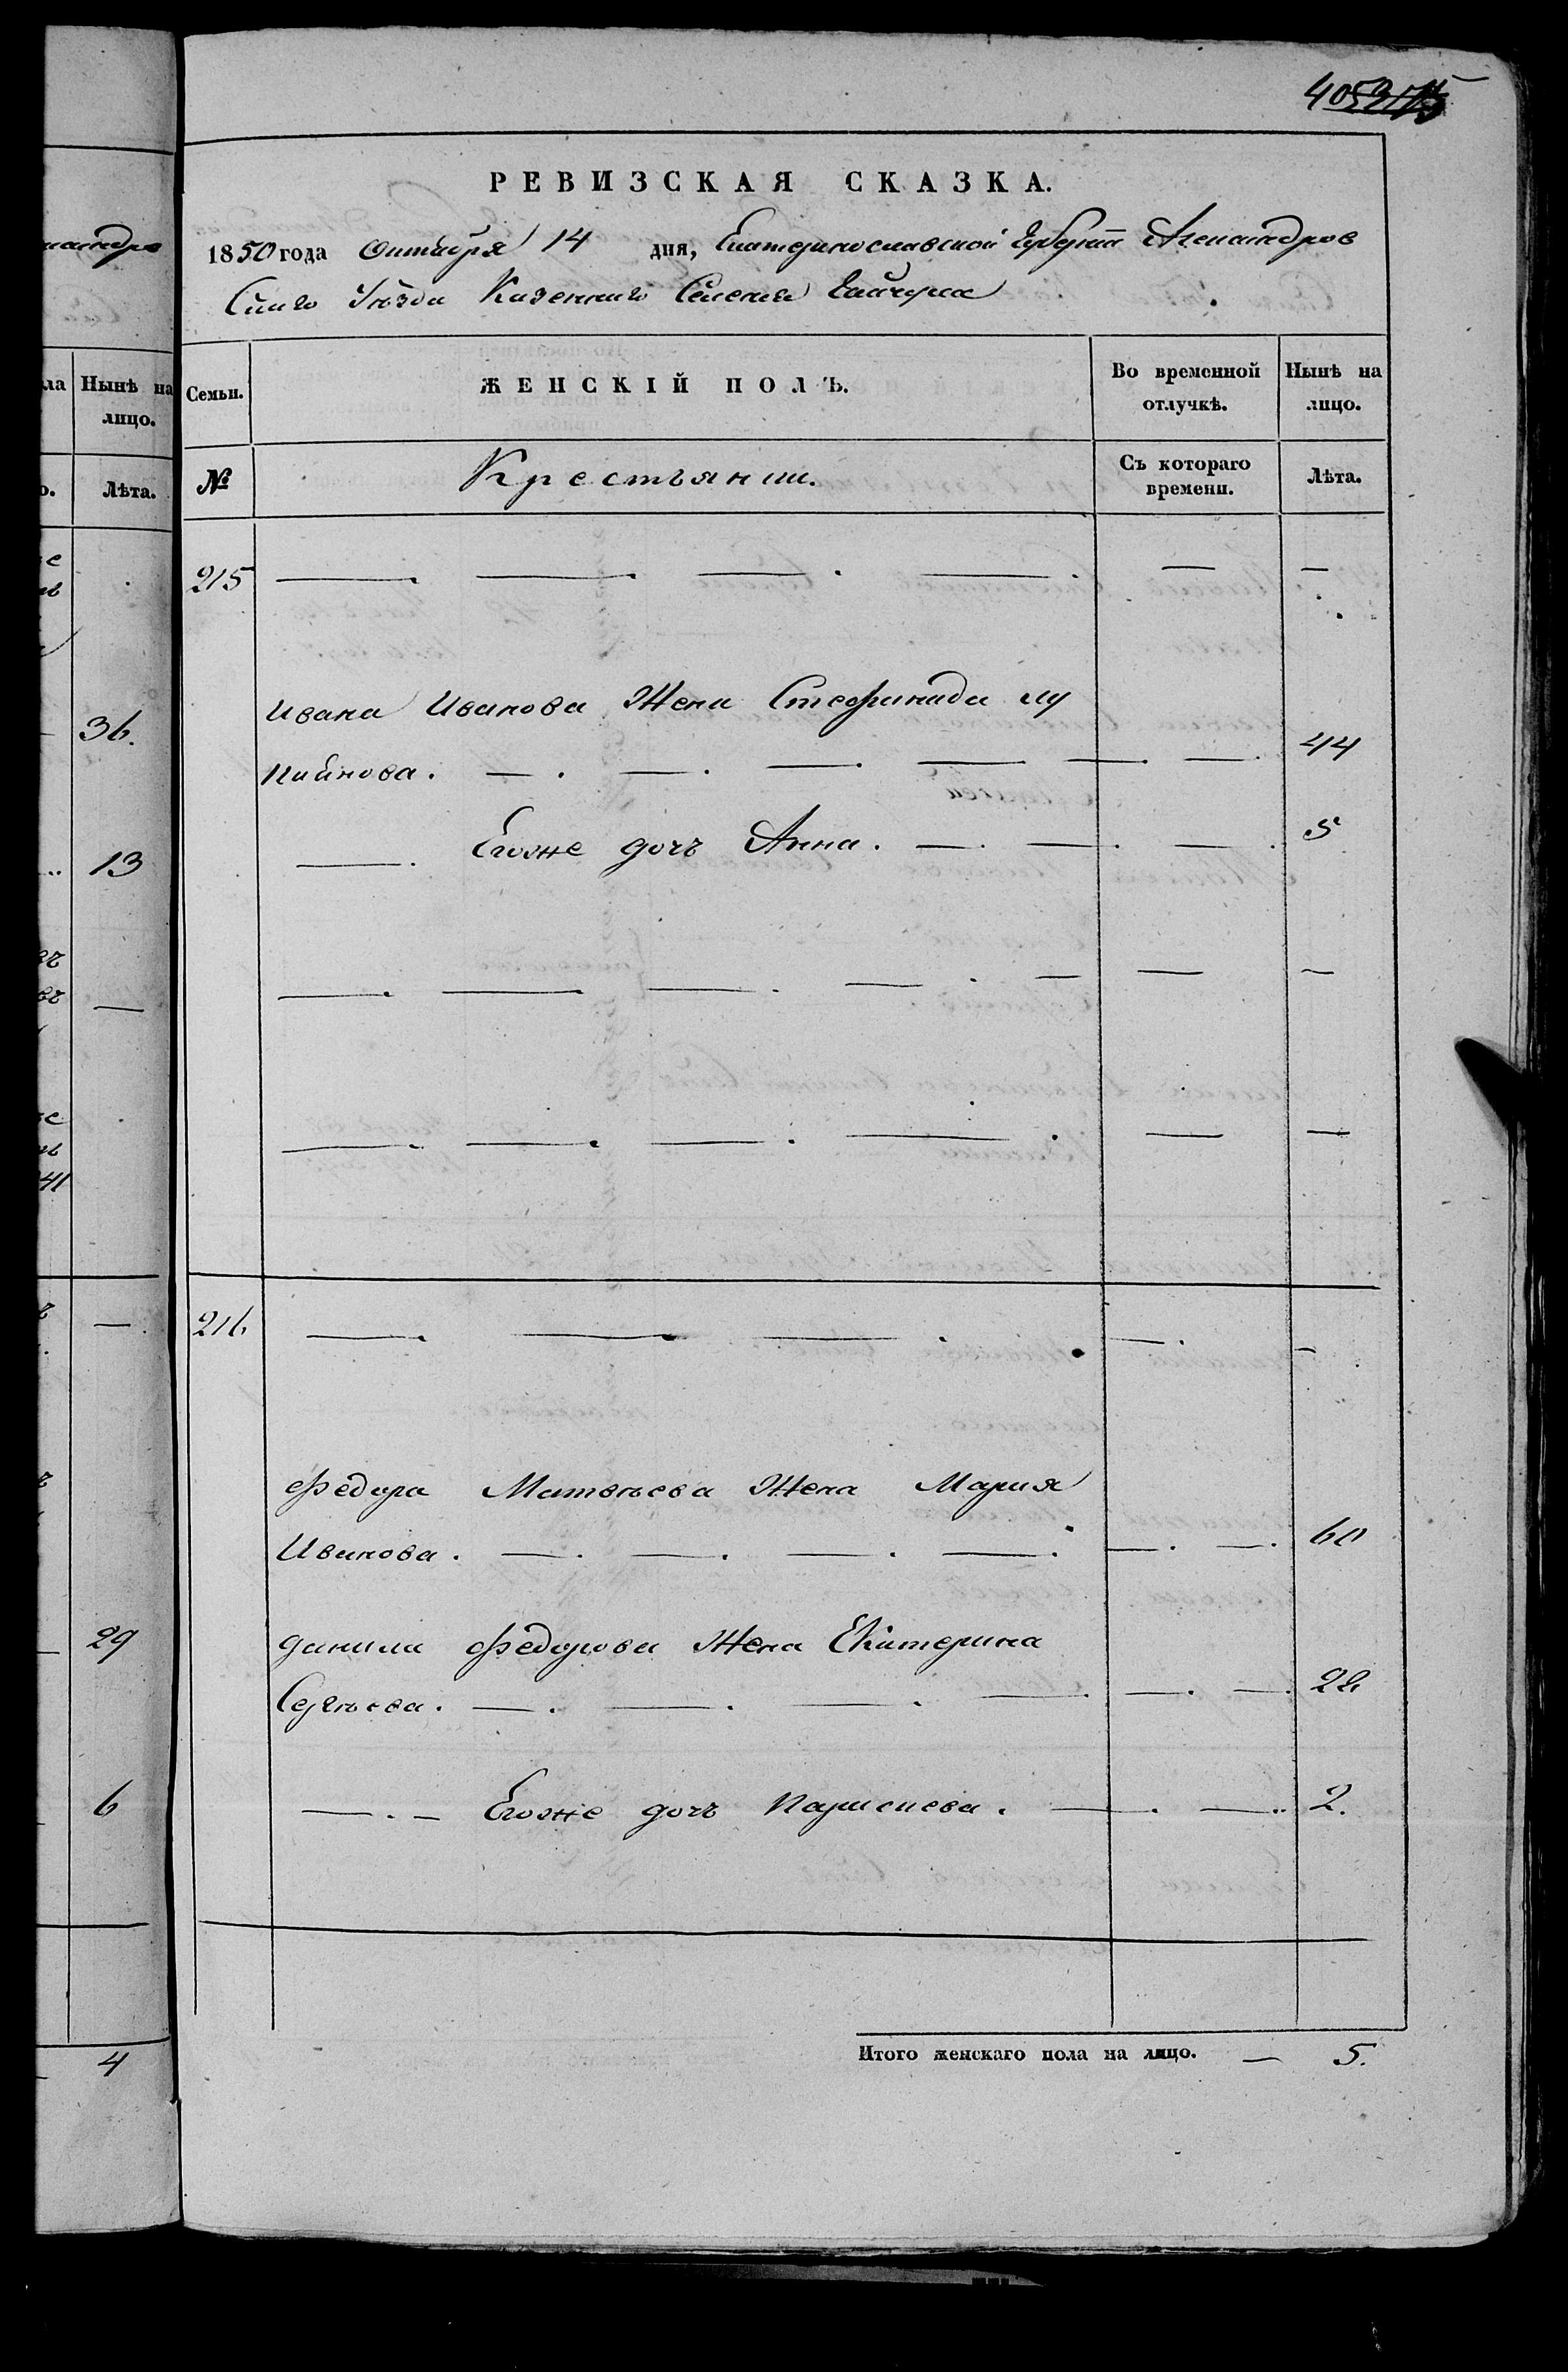 405
РЕВИЗСКАЯ СКАЗКА.
1850 года Октября 14 дня, Екатеринославской Губерніи Александров
Скаго Уѣзда Казеннаго Селенія Гайчула
Семьи. ЖЕНСКІЙ ПОЛЪ. Во временной отлучкѣ. Нынѣ на лицо.
№ Крестьянши. Съ котораго времени. Лѣта.
215
Ивана Иванова Жена Стефанида Лу
киянова. 44
Егоже дочь Анна. 5
216
Федора Матвѣева Жена Мария
Иванова. 60
Данила Федорова Жена Екатерина
Сергѣева. 28
Егоже дочь Параскева. 2.
Итого женскаго пола на лицо. — 5.
Нынѣ на
лицо.
Лѣта.
36.
13
29
6
4